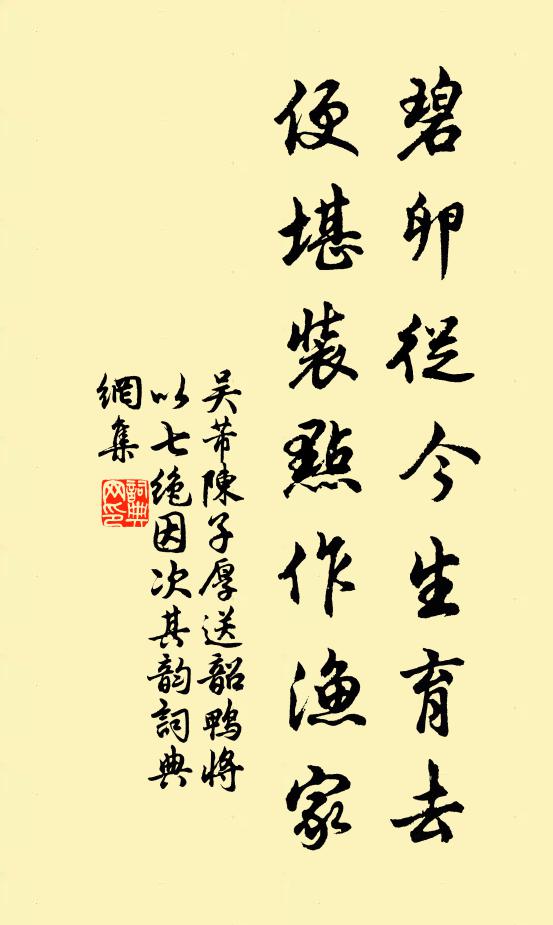 碧卵從今生育去
便堪裝點作漁家
吴芾陳子厚送韶鴨將
以七絶因次其韵詞典
網集
詞典
网印